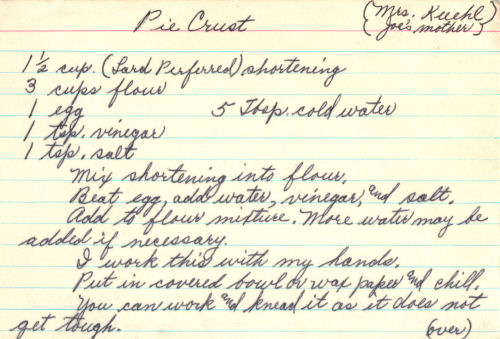 Pie Crust (Mrs. Kuehl
(Joe's mother)
1 ½ cup. (Lard Perferred) shortening
3 cups flour
1 egg 5 Tbsp. cold water
1 tsp. vinegar
1 tsp. salt
Mix shortening into flour.
Beat egg, add water, vinegar, and salt.
Add to flour mixture. More water may be
added if necessary.
I work this with my hands.
Put in covered bowl or wax paper and chill.
You can work and knead it as it does not
get tough. (over)